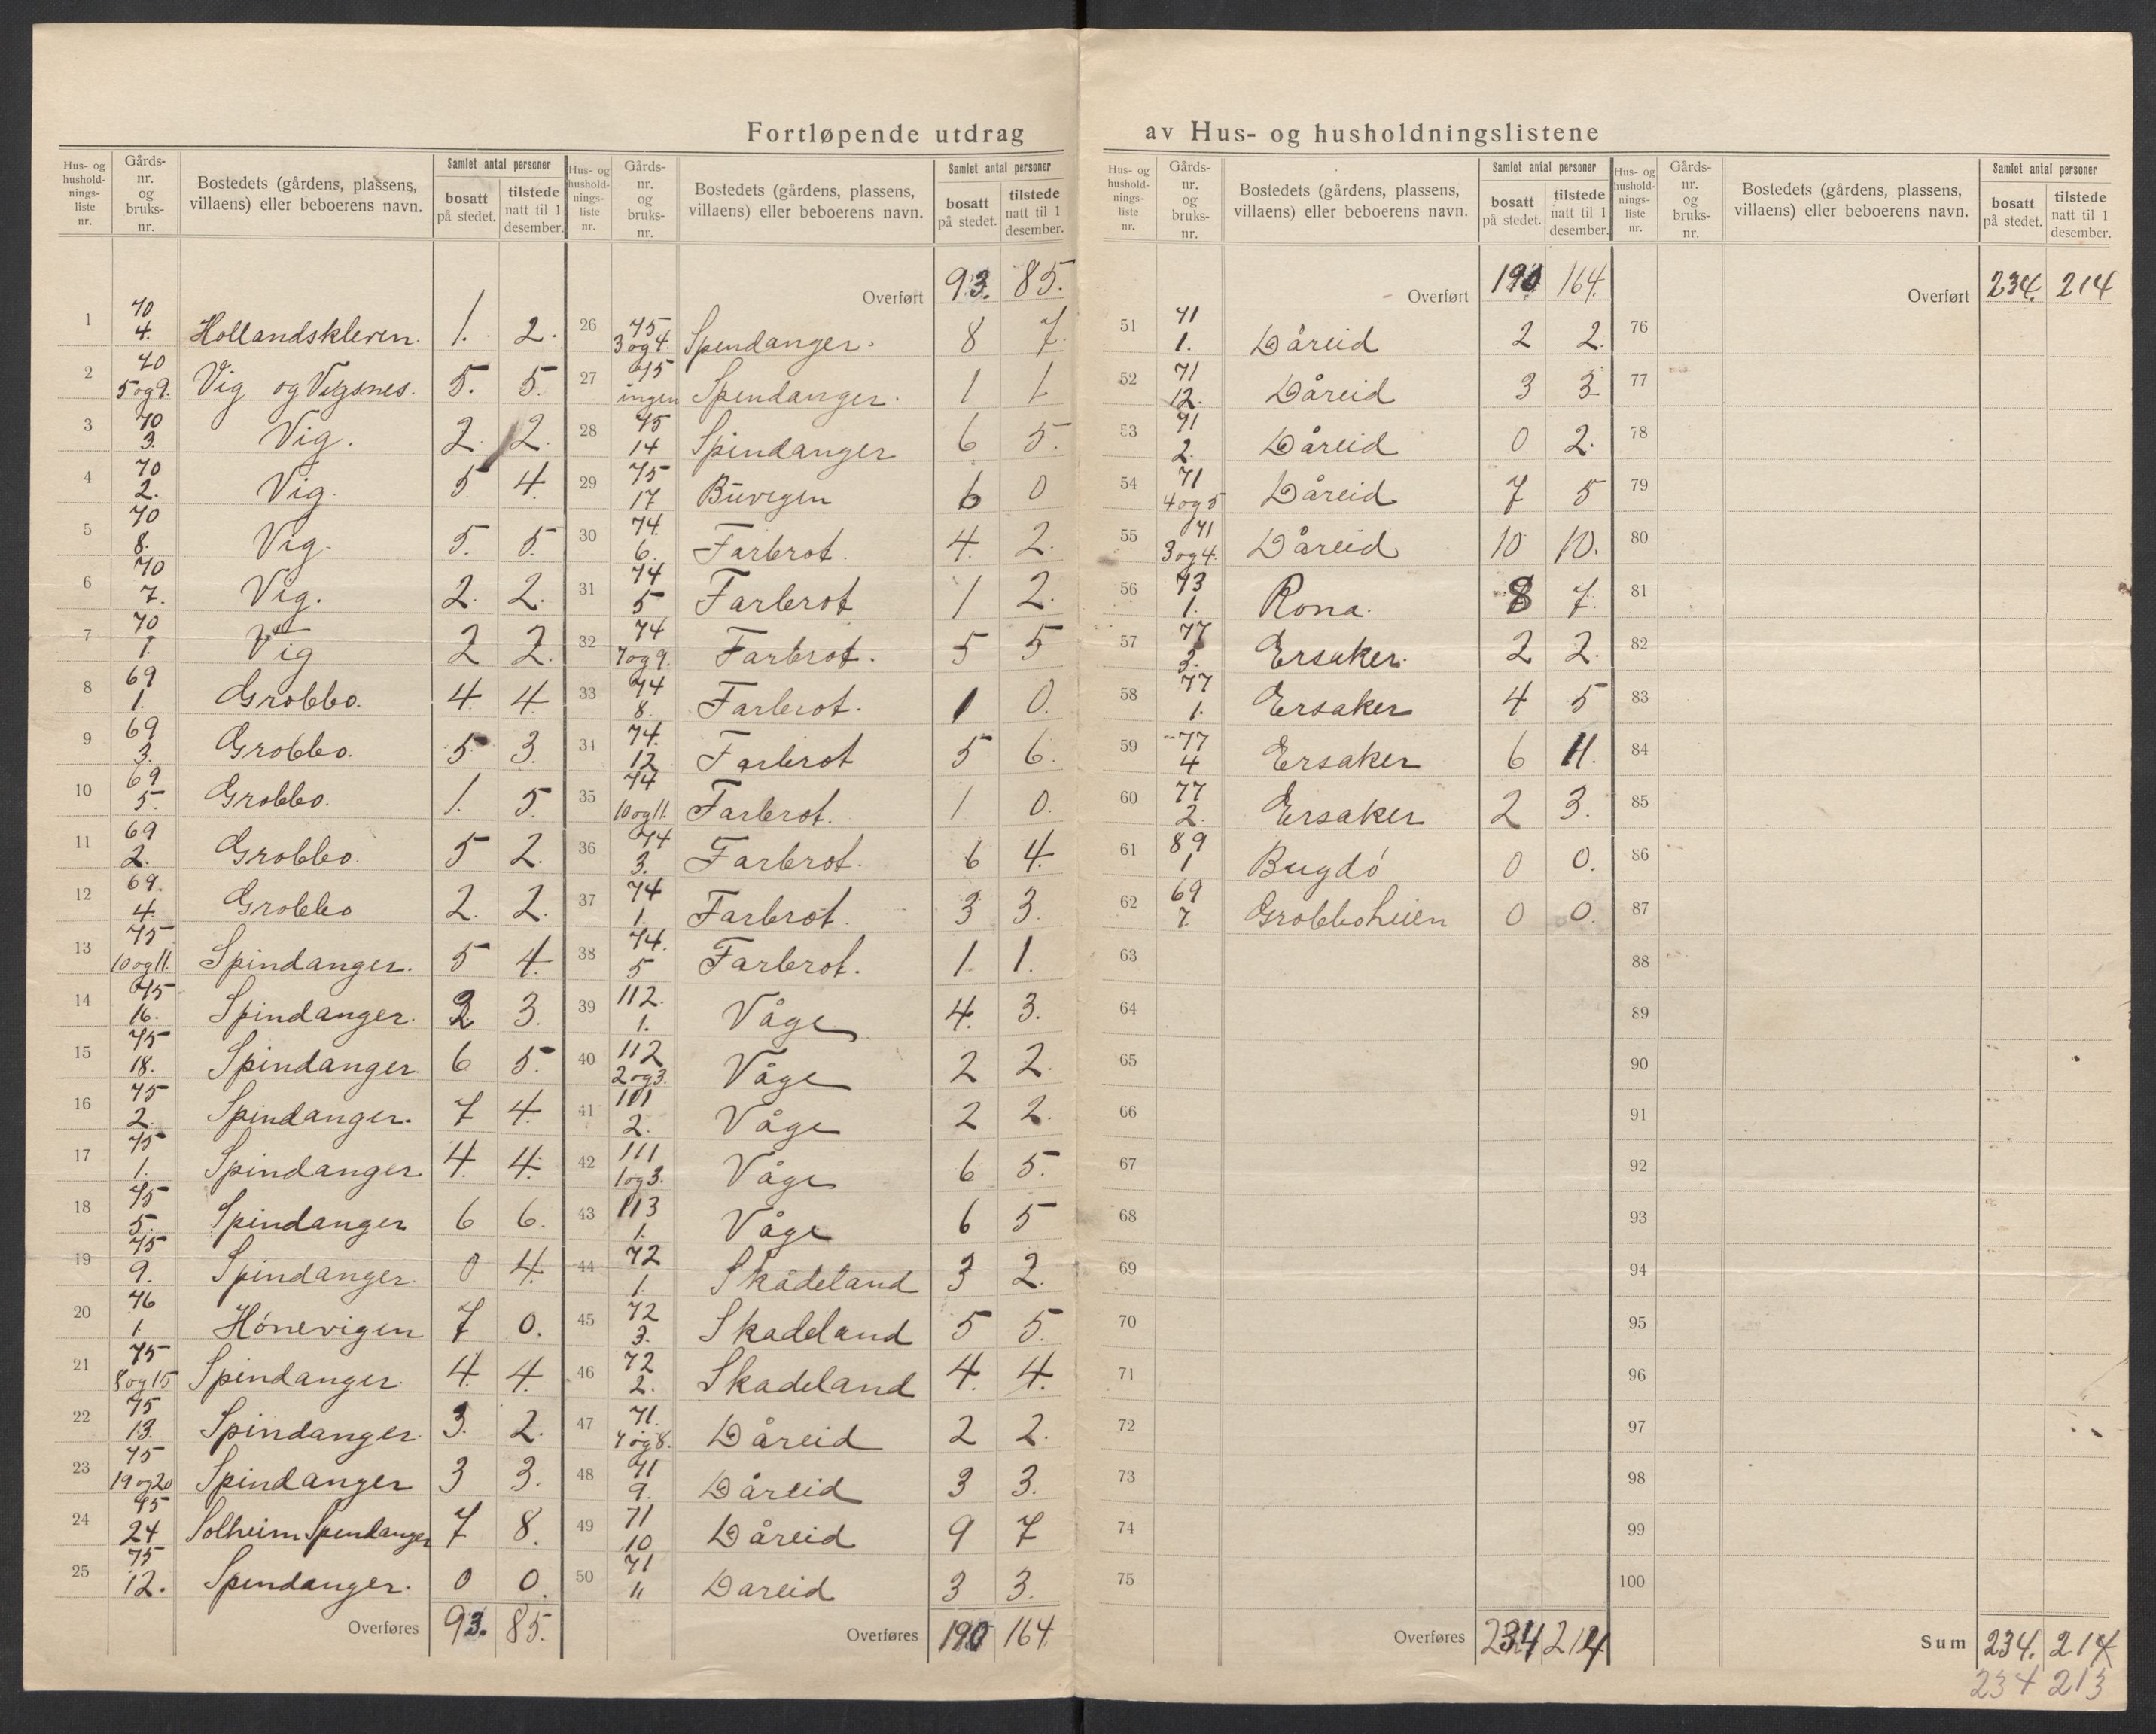 Fortløpende utdrag av Hus- og husholdningslistene
Hus- og husholdnings-liste nr. | Gårds-nr. og bruks-nr. | Bostedets (gårdens, plassens, villaens) eller beboerens navn. | Samlet antal personer: bosatt på stedet. | tilstede natt til 1 desember.
1 | 70 4. | Hollandskleven. | 1. | 2.
2 | 70 5 og 9. | Vig og Vigsnes. | 5. | 5.
3 | 70 3. | Vig. | 2. | 2.
4 | 70 2. | Vig. | 5 | 4.
5 | 70 8. | Vig. | 5. | 5.
6 | 70 7. | Vig. | 2. | 2.
7 | 70 1. | Vig | 2 | 2.
8 | 69 1. | Grobbo. | 4. | 4.
9 | 69 3. | Grobbo. | 5 | 3.
10 | 69 5. | Grobbo. | 1. | 5.
11 | 69 2. | Grobbo. | 5 | 2.
12 | 69. 4. | Grobbo | 2. | 2.
13 | 75 10 og 11. | Spindanger. | 5 | 4.
14 | 75 16. | Spindanger. | 2 | 3.
15 | 75 18. | Spindanger. | 6 | 5.
16 | 75 2. | Spindanger. | 7 | 4.
17 | 75 1. | Spindanger | 4. | 4.
18 | 75 5. | Spindanger | 6 | 6.
19 | 75 9. | Spindanger. | 0 | 4.
20 | 76 1. | Hónevigen | 7 | 0.
21 | 75 8 og 15 | Spindanger. | 4. | 4.
22 | 75 13. | Spindanger. | 3. | 2.
23 | 75 19 og 20 | Spindanger | 3 | 3.
24 | 75 24 | Solheim Spindanger | 7 | 8.
25 | 75 12. | Spindanger. | 0 | 0.
Overføres 93. 85.
Hus- og husholdnings-liste nr. | Gårds-nr. og bruks-nr. | Bostedets (gårdens, plassens, villaens) eller beboerens navn. | Samlet antal personer: bosatt på stedet. | tilstede natt til 1 desember.
Overført 93. 85.
26 | 75 3 og 4. | Spindanger. | 8 | 7.
27 | 75 ingen | Spindanger. | 1 | 1.
28 | 75 14 | Spindanger | 6 | 5.
29 | 75 17 | Buvigen | 6 | 0
30 | 74. 6. | Farbrot. | 4. | 2.
31 | 74 5 | Farbrot | 1 | 2.
32 | 74 7 og 9. | Farbrot. | 5 | 5
33 | 74 8. | Farbrot. | 1 | 0.
34 | 74. 12 | Farbrot | 5 | 6.
35 | 74 10 og 11. | Farbrot. | 1 | 0.
36 | 74 3. | Farbrot. | 6 | 4.
37 | 74 1. | Farbrot. | 3 | 3.
38 | 74. 5 | Farbrot. | 1 | 1.
39 | 112. 1. | Våge | 4. | 3.
40 | 112 2 og 3. | Våge | 2 | 2.
41 | 111 2. | Våge | 2 | 2.
42 | 111 1 og 3. | Våge | 6 | 5.
43 | 113 1. | Våge | 6 | 5
44 | 72 1. | Skådeland | 3 | 2.
45 | 72 3. | Skadeland | 5 | 5.
46 | 72 2. | Skadeland | 4. | 4.
47 | 71. 7 og 8. | Dåreid | 2 | 2.
48 | 71 9. | Dåreid | 3 | 3.
49 | 71 10 | Dåreid | 9 | 7
50 | 71 11 | Dareid | 3 | 3.
Overføres 190 164.
Hus- og husholdnings-liste nr. | Gårds-nr. og bruks-nr. | Bostedets (gårdens, plassens, villaens) eller beboerens navn. | Samlet antal personer: bosatt på stedet. | tilstede natt til 1 desember.
Overført 190 164.
51 | 71 1. | Dåreid | 2 | 2.
52 | 71 12. | Dåreid | 3 | 3.
53 | 71 2. | Dåreid | 0 | 2.
54 | 71 4 og 5 | Dåreid | 7 | 5
55 | 71 3 og 4. | Dåreid | 10 | 10.
56 | 73 1. | Rona. | 8 | 7.
57 | 77 3. | Ersaker. | 2 | 2.
58 | 77 1. | Ersaker | 4 | 5
59 | 77 4 | Ersaker | 6 | 11.
60 | 77 2. | Ersaker | 2 | 3.
61 | 89 1 | Bugdó | 0 | 0.
62 | 69 7. | Grobboheien | 0 | 0.
63
64
65
66
67
68
69
70
71
72
73
74
75
Overføres 234 214
Hus- og husholdnings-liste nr. | Gårds-nr. og bruks-nr. | Bostedets (gårdens, plassens, villaens) eller beboerens navn. | Samlet antal personer: bosatt på stedet. | tilstede natt til 1 desember.
Overført 234. 214
76
77
78
79
80
81
82
83
84
85
86
87
88
89
90
91
92
93
94
95
96
97
98
99
100
Sum 234. 214
234 213